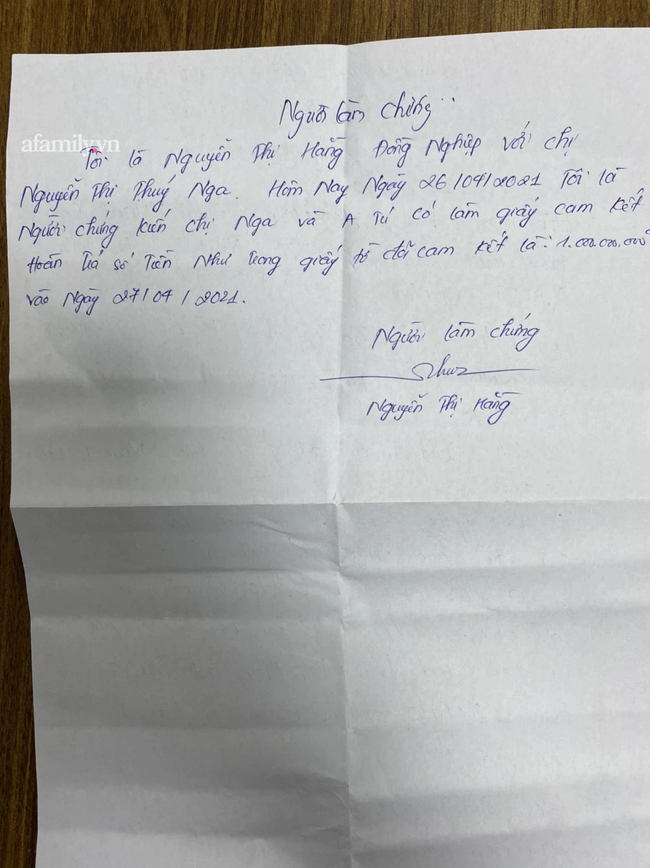 Người làm chứng
afamily.vn
Tôi là Nguyễn Thị Hằng Đồng Nghiệp với chị
Nguyễn Thị Thuý Nga. Hôm Nay Ngày 26/04/2021 Tôi là
Người chứng kiến chị Nga và A Tú có làm giấy cam kết
Hoàn Trả số Tiền Như trong giấy tờ đã cam kết là: 1.000.000.000đ
vào Ngày 27/04/2021.
Người làm chứng
Nguyễn Thị Hằng